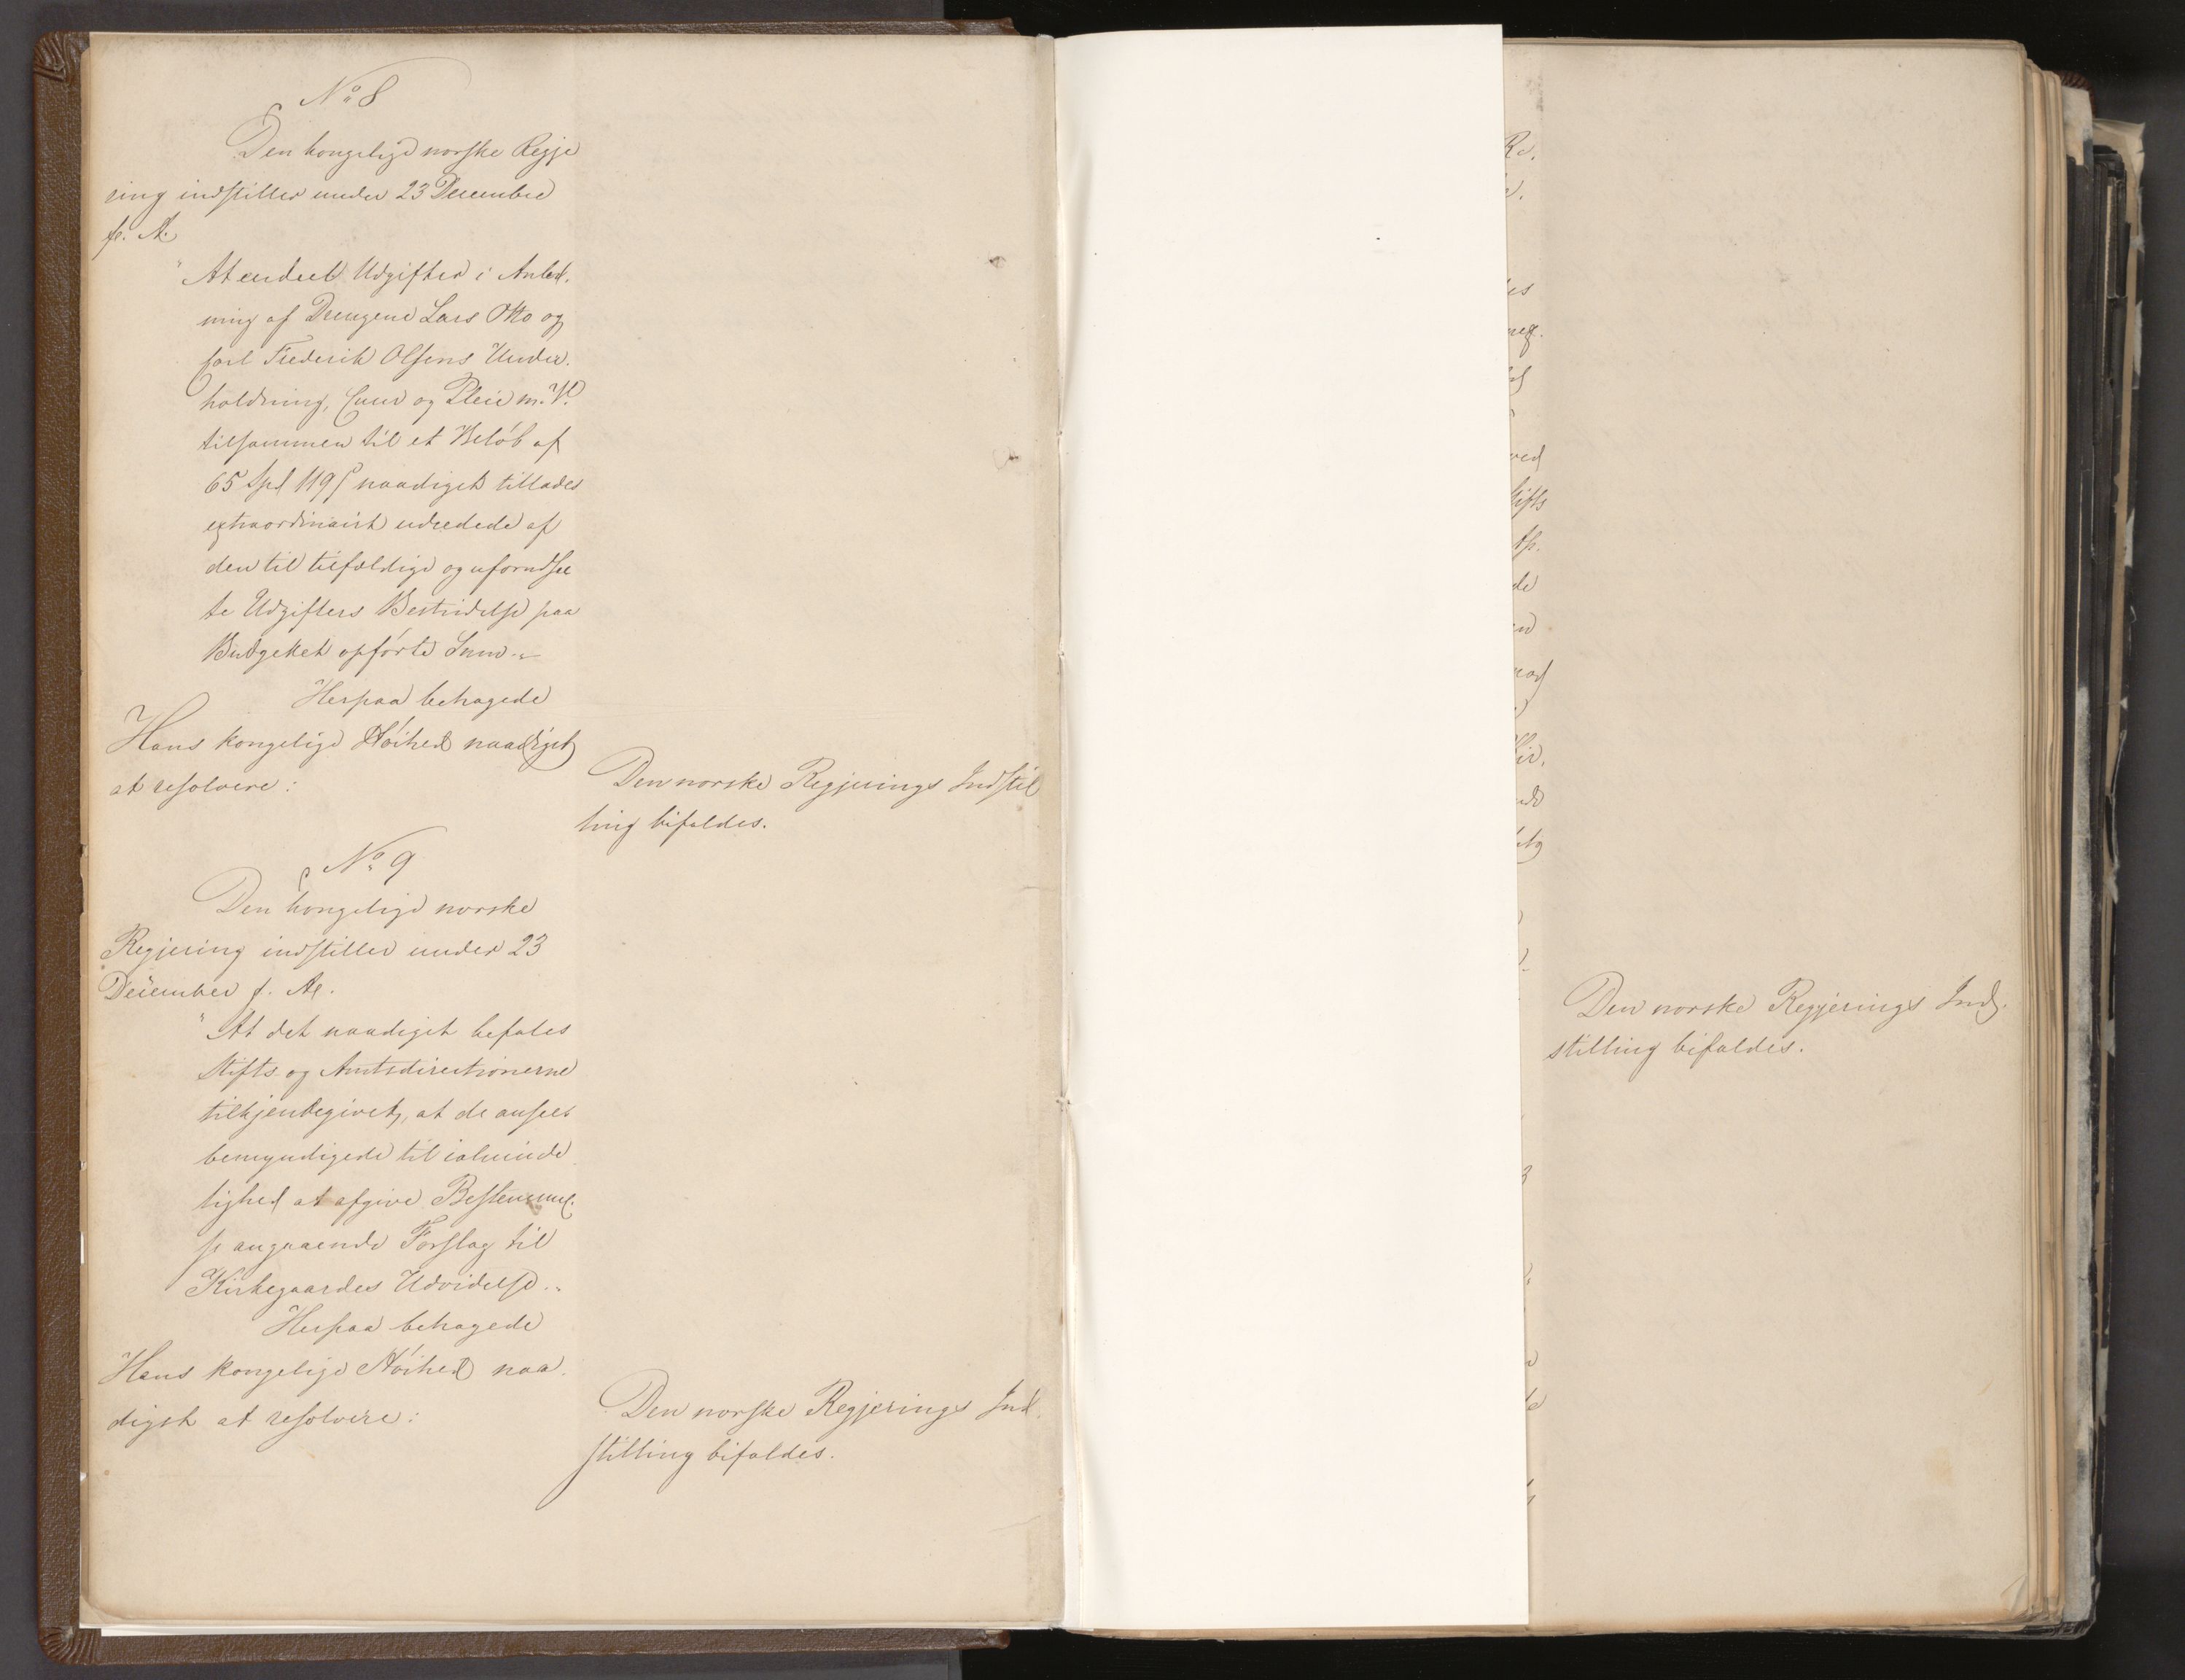 No 8
Den kongelige norske Regje
ring indstiller under 23 December
f. A.
"At endeel Udgifter i Anled.
ning af Drengene Lars Otto og
Carl Frederik Olsens Under.
holdning, Cuur og Pleie m. V.
tilsammen til et Beløb af
65 Spd 119 s naadigst tillades
extraordinairt udredede af
den til tilfældige og uforudsee
te Udgifters Bestridelse paa
Budgettet opførte Sum."
Herpaa behagede
Hans kongelige Høihed naadigst
at resolvere:
Den norske Regjerings Indstil
ling bifaldes.
No 9
Den kongelige norske
Regjering indstiller under 23
December f. A.
"At det naadigst befales
Stifts- og Amtsdirectionerne
tilkjendegivet, at de ansees
bemyndigede til ialminde
lighed at afgive Bestemmel.
se angaaende Forslag til
Kirkegaardes Udvidelse."
Herpaa behagede
Hans kongelige Høihed naa.
digst at resolvere:
Den norske Regjerings Ind.
stilling bifaldes.
Den norske Regjerings Ind.
stilling bifaldes.